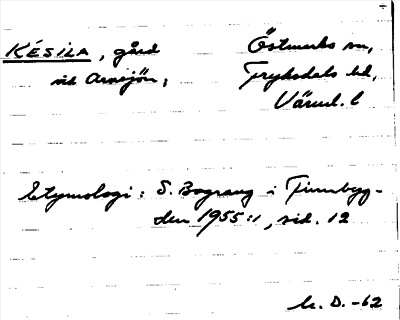 KÉSILA, gård Östmarks sn,
vid Arnsjön, Fryksdals hd,
Värml. l
Etymologi: S. Bograng i Finnbyg-
den 1955:1, sid. 12
M. D. -62